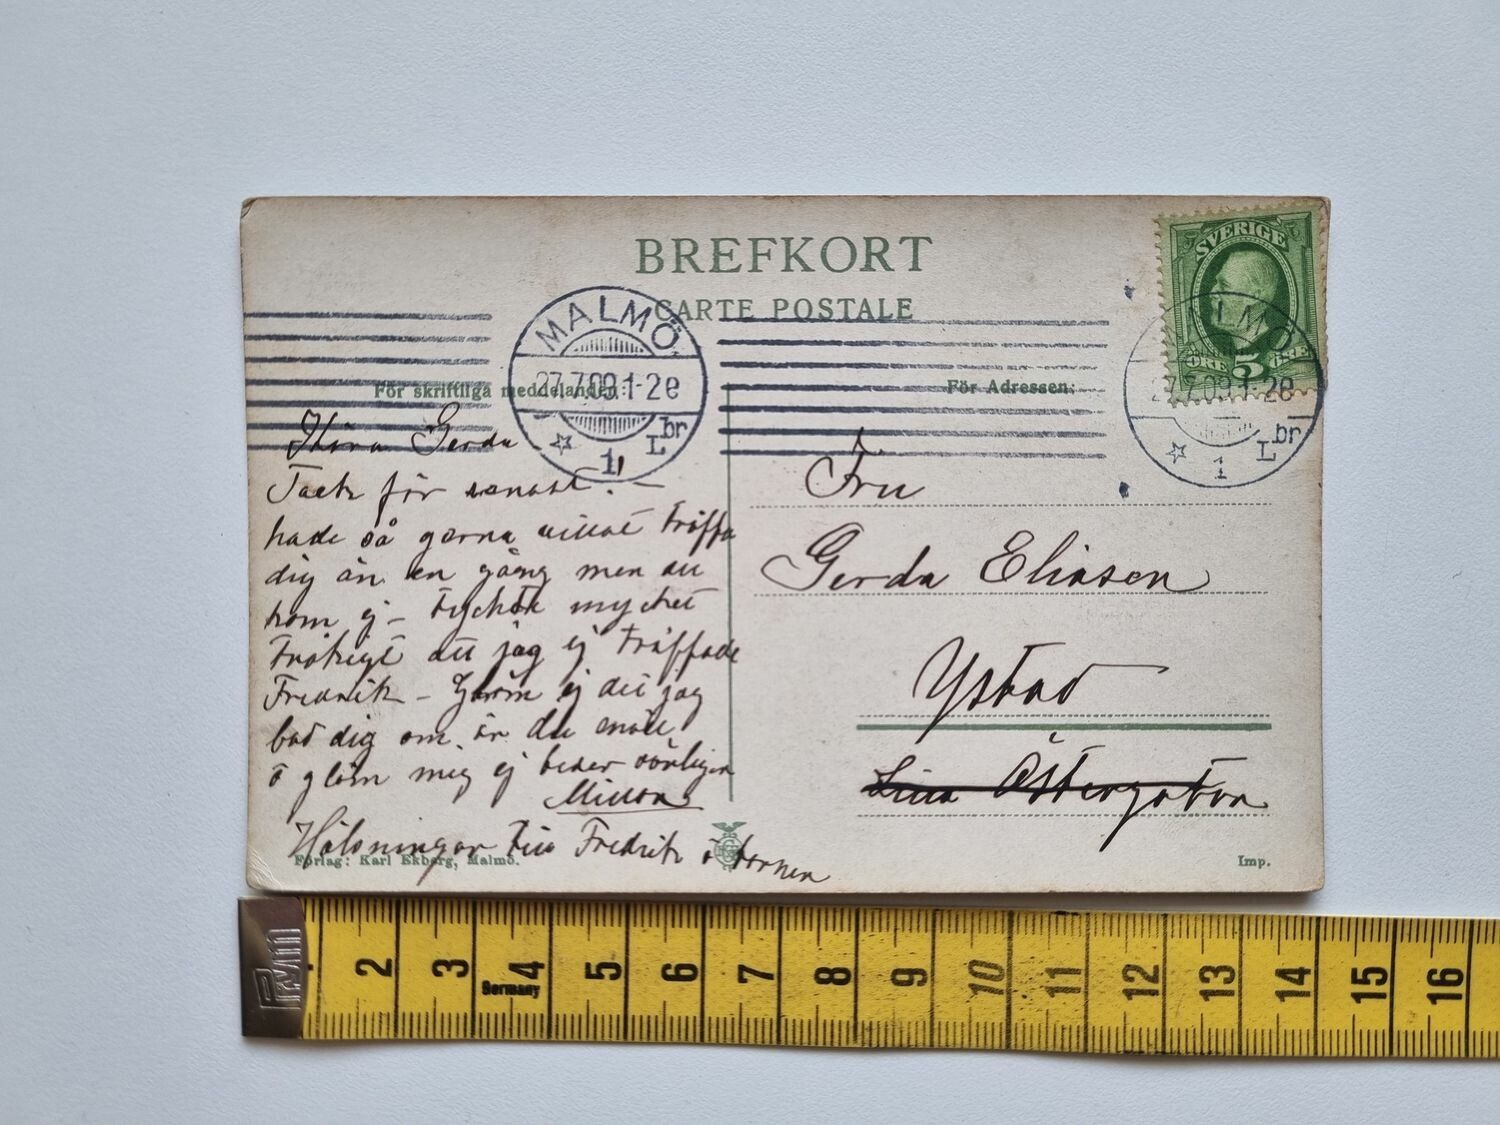 BREFKORT
CARTE POSTALE
SVERIGE
ÖRE 5 ÖRE
MALMÖ
27.7.09.1-2e
1 L br
MALMÖ
27.7.09.1-2e
1 L br
För skriftliga meddelanden:
För Adressen:
Kära Gerda
Tack för senast! —
hade så gerna villat träffa
dig än en gång men du
kom ej — tyckte mycket
tråkigt att jag ej träffade
Fredrik — Glöm ej det jag
bad dig om, är du snäll
o glöm mig ej beder
Hälsningar till Fredrik o
Fru
Gerda Eliasen
Ystad
Lilla Östergatan
Förlag: Karl Ekberg, Malmö.
Imp.
2 3 4 5 6 7 8 9 10 11 12 13 14 15 16
Germany